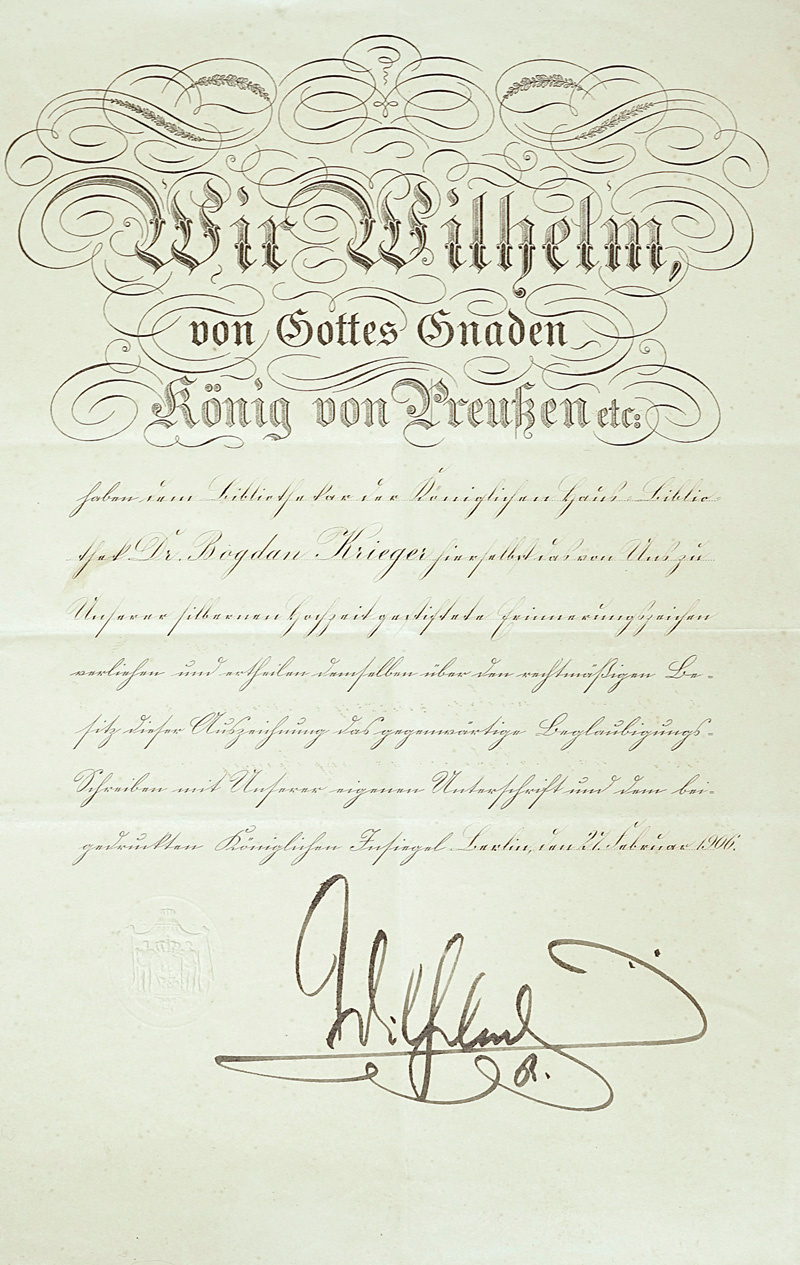 Wir Wilhelm,
von Gottes Gnaden
König von Preußen etc:
haben dem Bibliothekar der Königlichen Haus-Biblio-
thek Dr. Bogdan Krieger hierselbst das von Uns zu
Unserer silbernen Hochzeit gestiftete Erinnerungszeichen
verliehen und ertheilen demselben über den rechtmäßigen Be-
sitz dieser Auszeichnung das gegenwärtige Beglaubigungs-
Schreiben mit Unserer eigenen Unterschrift und dem bei-
gedruckten Königlichen Insiegel. Berlin, den 27. Februar 1906.
Wilhelm
R.